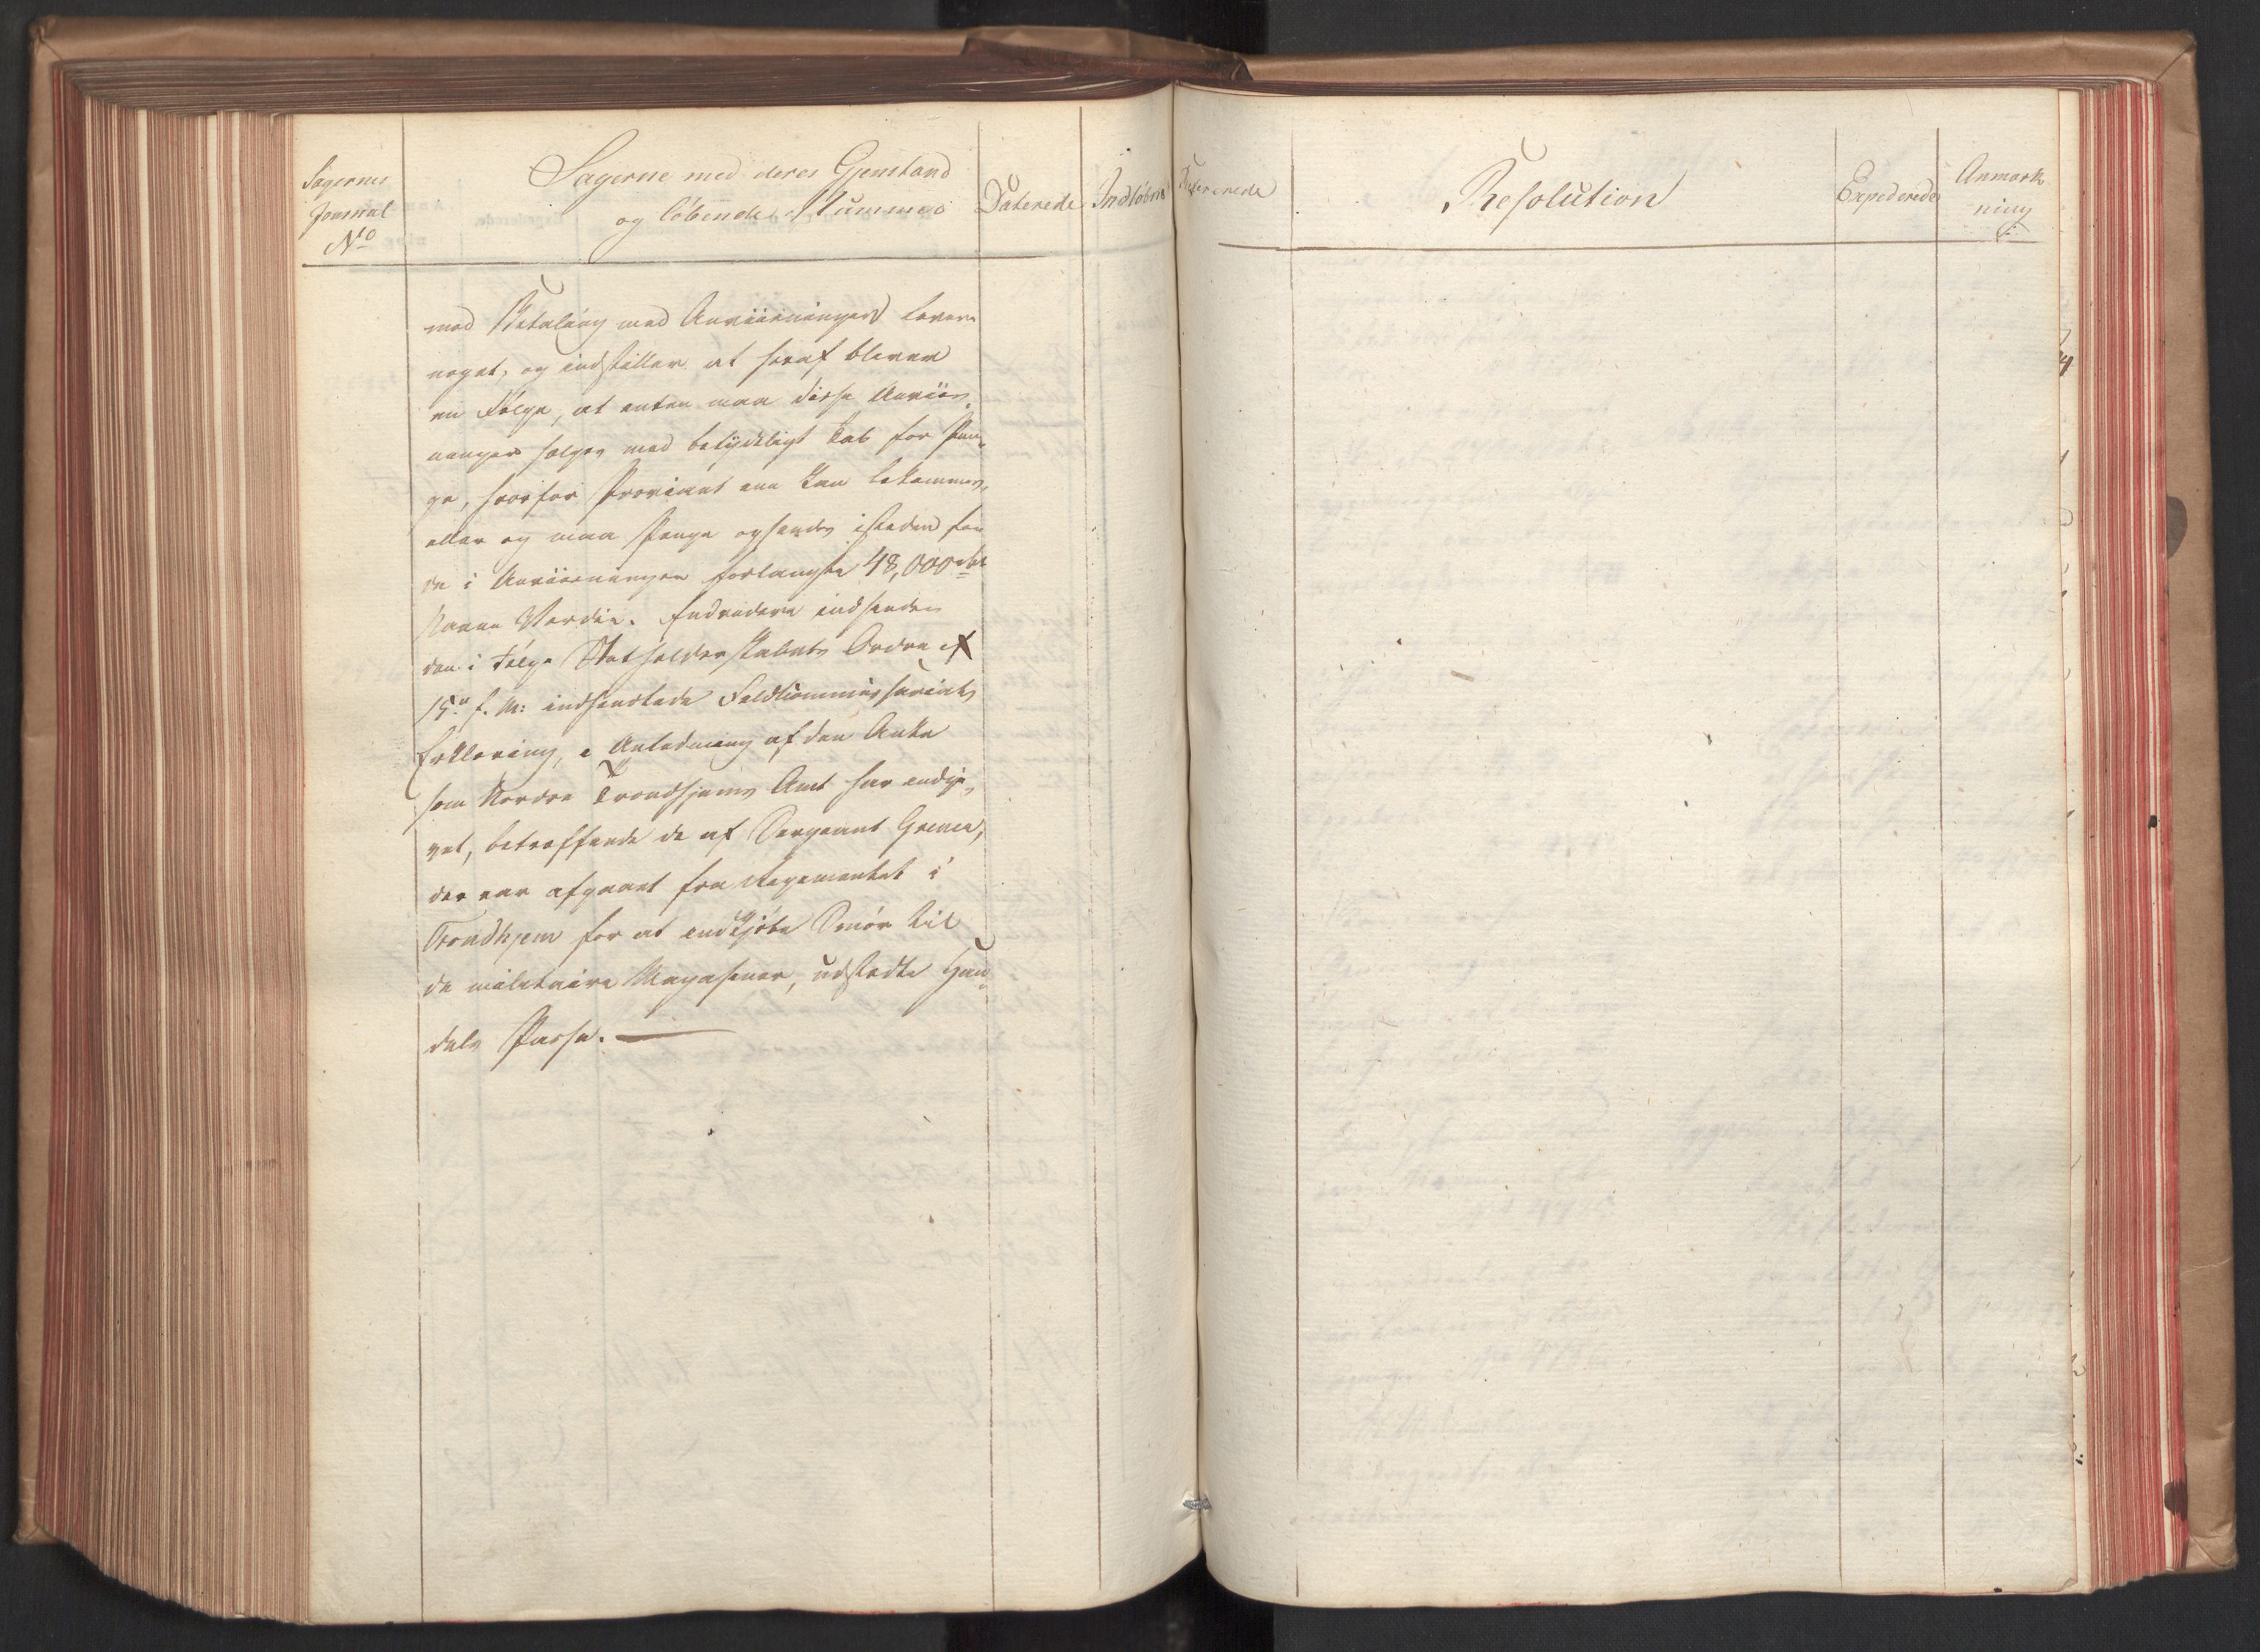 Sagernes
Journal
No
Sagerne med deres Gjenstand
og löbende Nummer
Daterede
Indlöbne
Refererede
Resolution
Expederede
Anmærk
ning
med Betaling med Anviisninger levere
noget, og indstiller at heraf bliver
en Fölge, at enten maa disse Anviis-
ninger sælges med betydeligt Tab for Pen-
ge, hvorfor Proviant ene kan bekommes,
eller og maa Penge opsendes isteden for
de i Anviisninger forlangte 48,000 rbd
Navne Værdie. Endvidere indsendes
den i Fölge Statholderskabets Ordre af
15de f. M: indhentede Feldtcommissariats
Erklæring, i Anledning af den Anke
som Nordre Trondhjems Amt har indgi-
vet, betræffende de af Sergeant
der var afgaaet fra Regementet i
Trondhjem for at indkjöbe Smör til
de militaire Magasiner, udstedte Han-
dels Passe. —